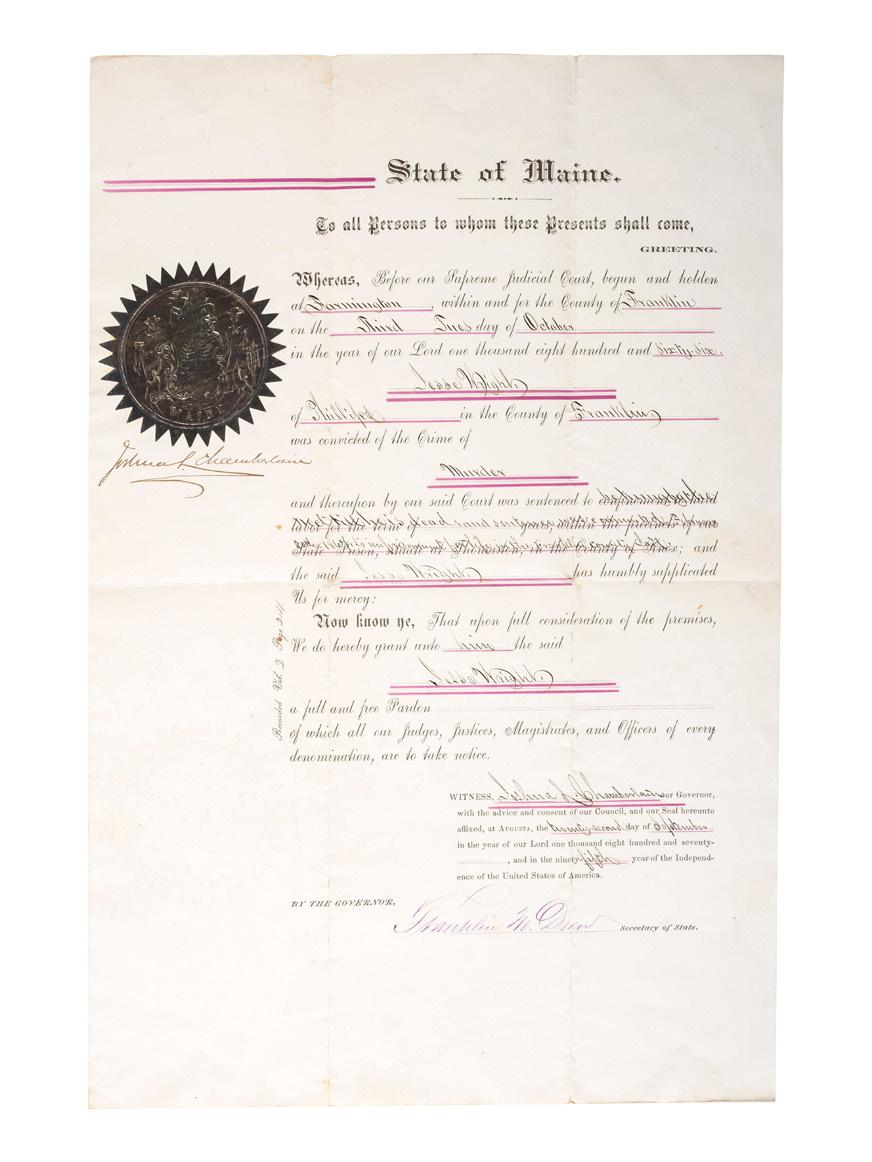 State of Maine.
To all Persons to whom these Presents shall come,
GREETING.
Whereas, Before our Supreme Judicial Court, begun and holden
at Farmington, within and for the County of Franklin
on the Third Tues day of October
in the year of our Lord one thousand eight hundred and sixty-six.
Jesse Wright
of Phillips in the County of Franklin
was convicted of the Crime of
Murder
and thereupon by our said Court was sentenced to
State Prison, in the County of Knox; and
the said Jesse Wright has humbly supplicated
Us for mercy:
Now know ye, That upon full consideration of the premises,
We do hereby grant unto him the said
Jesse Wright
a full and free Pardon
of which all our Judges, Justices, Magistrates, and Officers of every
denomination, are to take notice.
WITNESS, Joshua L. Chamberlain our Governor,
with the advice and consent of our Council, and our Seal hereunto
affixed, at AUGUSTA, the twenty-second day of September
in the year of our Lord one thousand eight hundred and seventy-
, and in the ninety-fifth year of the Independ-
ence of the United States of America.
BY THE GOVERNOR,
Franklin M. Drew Secretary of State.
MAINE
Joshua L. Chamberlain
Recorded Vol. 2 Page 214